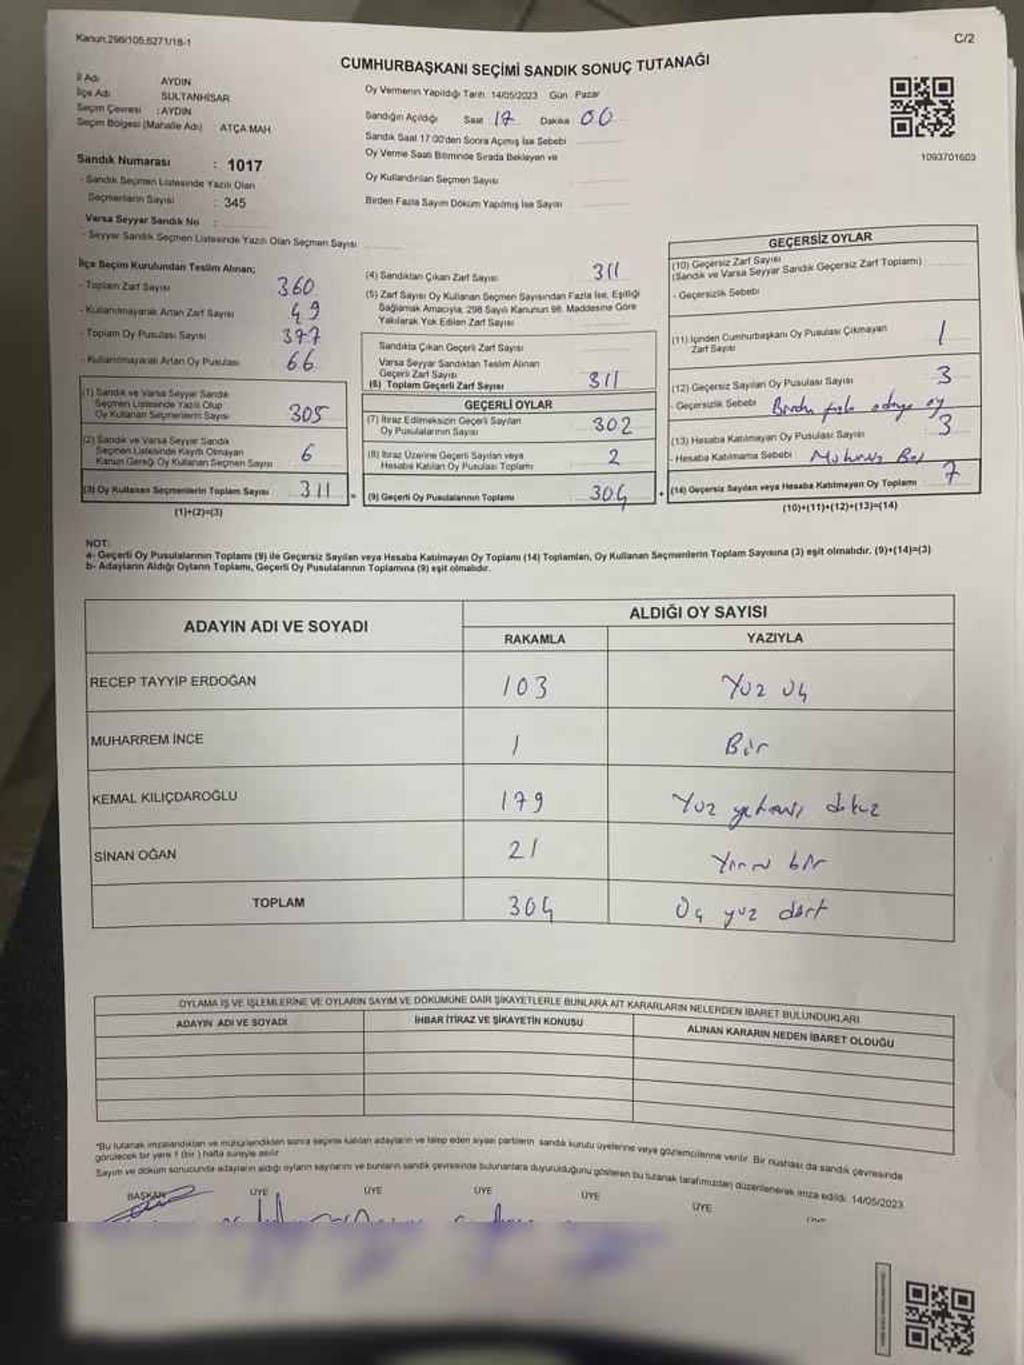 Kanun:298/105,6271/18-1
C/2
CUMHURBAŞKANI SEÇİMİ SANDIK SONUÇ TUTANAĞI
İl Adı AYDIN
İlçe Adı SULTANHİSAR
Seçim Çevresi : AYDIN
Seçim Bölgesi (Mahalle Adı) : ATÇA MAH
Sandık Numarası : 1017
- Sandık Seçmen Listesinde Yazılı Olan
Seçmenlerin Sayısı : 345
Varsa Seyyar Sandık No :
- Seyyar Sandık Seçmen Listesinde Yazılı Olan Seçmen Sayısı
Oy Vermenin Yapıldığı Tarih: 14/05/2023 Gün: Pazar
Sandığın Açıldığı Saat 17 Dakika 00
Sandık Saat 17:00'den Sonra Açılmış İse Sebebi
Oy Verme Saati Bitiminde Sırada Bekleyen ve
Oy Kullandırılan Seçmen Sayısı
Birden Fazla Sayım Döküm Yapılmış İse Sayısı
1093701603
İlçe Seçim Kurulundan Teslim Alınan;
- Toplam Zarf Sayısı 360
- Kullanılmayarak Artan Zarf Sayısı 49
- Toplam Oy Pusulası Sayısı 377
- Kullanılmayarak Artan Oy Pusulası 66
(1) Sandık ve Varsa Seyyar Sandık
Seçmen Listesinde Yazılı Olup
Oy Kullanan Seçmenlerin Sayısı 305
(2) Sandık ve Varsa Seyyar Sandık
Seçmen Listesinde Kayıtlı Olmayan
Kanun Gereği Oy Kullanan Seçmen Sayısı 6
(3) Oy Kullanan Seçmenlerin Toplam Sayısı 311
(1)+(2)=(3)
(4) Sandıktan Çıkan Zarf Sayısı 311
(5) Zarf Sayısı Oy Kullanan Seçmen Sayısından Fazla İse, Eşitliği
Sağlamak Amacıyla; 298 Sayılı Kanunun 98. Maddesine Göre
Yakılarak Yok Edilen Zarf Sayısı
Sandıkta Çıkan Geçerli Zarf Sayısı
Varsa Seyyar Sandıktan Teslim Alınan
Geçerli Zarf Sayısı
(6) Toplam Geçerli Zarf Sayısı 311
GEÇERLİ OYLAR
(7) İtiraz Edilmeksizin Geçerli Sayılan
Oy Pusulalarının Sayısı 302
(8) İtiraz Üzerine Geçerli Sayılan veya
Hesaba Katılan Oy Pusulası Toplamı 2
= (9) Geçerli Oy Pusulalarının Toplamı 304 +
GEÇERSİZ OYLAR
(10) Geçersiz Zarf Sayısı
(Sandık ve Varsa Seyyar Sandık Geçersiz Zarf Toplamı)
- Geçersizlik Sebebi
(11) İçinden Cumhurbaşkanı Oy Pusulası Çıkmayan
Zarf Sayısı 1
(12) Geçersiz Sayılan Oy Pusulası Sayısı 3
- Geçersizlik Sebebi Birden fazla adaya oy
(13) Hesaba Katılmayan Oy Pusulası Sayısı 3
- Hesaba Katılmama Sebebi
(14) Geçersiz Sayılan veya Hesaba Katılmayan Oy Toplamı 7
(10)+(11)+(12)+(13)=(14)
NOT:
a- Geçerli Oy Pusulalarının Toplamı (9) ile Geçersiz Sayılan veya Hesaba Katılmayan Oy Toplamı (14) Toplamları, Oy Kullanan Seçmenlerin Toplam Sayısına (3) eşit olmalıdır. (9)+(14)=(3)
b- Adayların Aldığı Oyların Toplamı, Geçerli Oy Pusulalarının Toplamına (9) eşit olmalıdır.
ADAYIN ADI VE SOYADI
ALDIĞI OY SAYISI
RAKAMLA YAZIYLA
RECEP TAYYİP ERDOĞAN 103 Yüz üç
MUHARREM İNCE 1 Bir
KEMAL KILIÇDAROĞLU 179 Yüz yetmiş dokuz
SİNAN OĞAN 21 Yirmi bir
TOPLAM 304 Üç yüz dört
OYLAMA İŞ VE İŞLEMLERİNE VE OYLARIN SAYIM VE DÖKÜMÜNE DAİR ŞİKAYETLERLE BUNLARA AİT KARARLARIN NELERDEN İBARET BULUNDUKLARI
ADAYIN ADI VE SOYADI İHBAR İTİRAZ VE ŞİKAYETİN KONUSU ALINAN KARARIN NEDEN İBARET OLDUĞU
*Bu tutanak imzalandıktan ve mühürlendikten sonra seçime katılan adayların ve talep eden siyasi partilerin sandık kurulu üyelerine veya gözlemcilerine verilir. Bir nüshası da sandık çevresinde
görülecek bir yere 1 (bir) hafta süreyle asılır.
Sayım ve döküm sonucunda adayların aldığı oyların sayılarını ve bunların sandık çevresinde bulunanlara duyurulduğunu gösteren bu tutanak tarafımızdan düzenlenerek imza edildi. 14/05/2023
BAŞKAN ÜYE ÜYE ÜYE ÜYE ÜYE